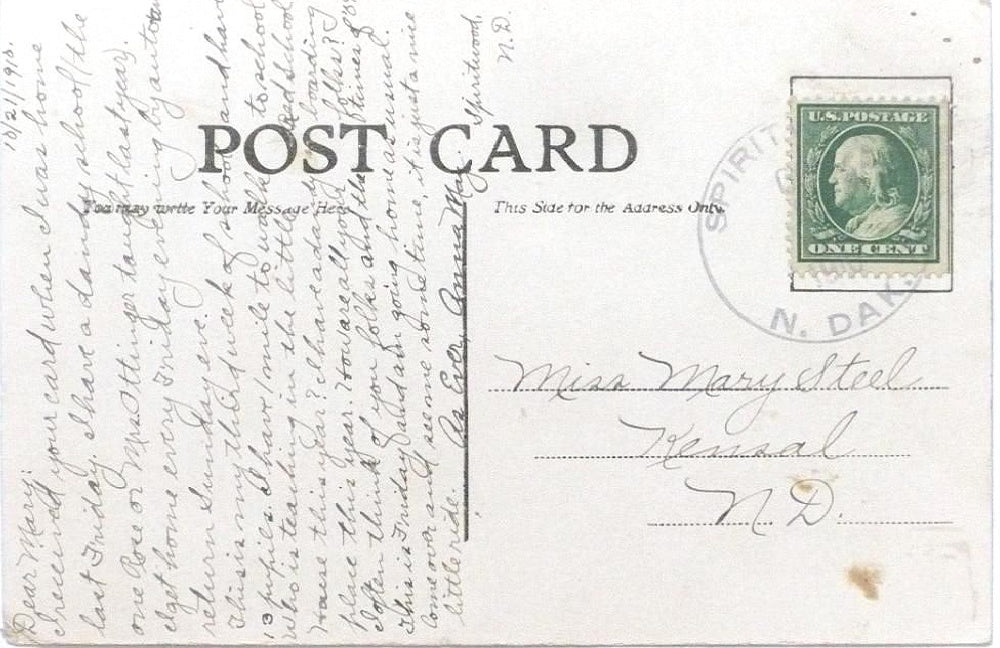 POST CARD
You may write Your Message Here
This Side for the Address Only.
U.S. POSTAGE
ONE CENT
SPIRIT
N. DAK.
Miss Mary Steel
Kensal
N. D.
10/21/1910.
Dear Mary:
I received your card when I was home
last Friday. I have a dandy school (the
one Rose or Mrs Ottinger taught last year).
I get home every Friday evening by auto
return Sunday eve.
This is my third week of school and have
13 pupils. I have 1 mile to walk to school
who is teaching in the little red school
House this year? I have a dandy boarding
place this year. How are all your folks?
I often think of you folks and the times
This is Friday and am going home as usual.
Come over and see me sometime, it is just a nice
little ride.
As Ever, Anna May
Spiritwood,
N. D.